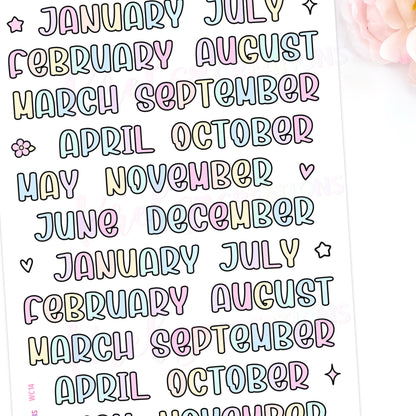 JANUARY JULY
FEBRUARY AUGUST
MARCH SEPTEMBER
APRIL OCTOBER
MAY NOVEMBER
JUNE DECEMBER
JANUARY JULY
FEBRUARY AUGUST
MARCH SEPTEMBER
APRIL OCTOBER
NOVEMBER
WC14